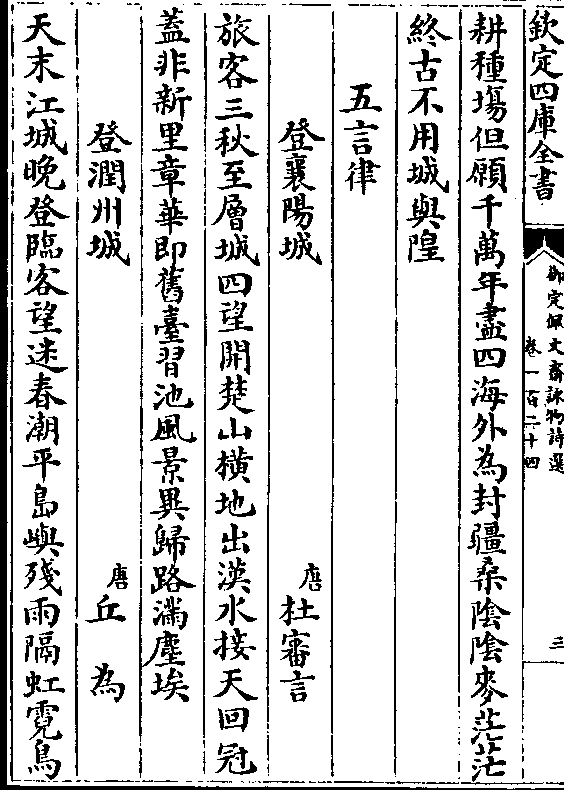 欽定四庫全書
御定佩文齋詠物詩選
卷一百二十四
三
耕種塲但願千萬年盡四海外為封疆桑陰陰麥茫茫
終古不用城與隍
五言律
登襄陽城
唐杜審言
旅客三秋至層城四望開楚山橫地出漢水接天回冠
蓋非新里章華即舊臺習池風景異歸路滿塵埃
登潤州城
唐丘為
天末江城晚登臨客望迷春潮平島嶼殘雨隔虹霓鳥